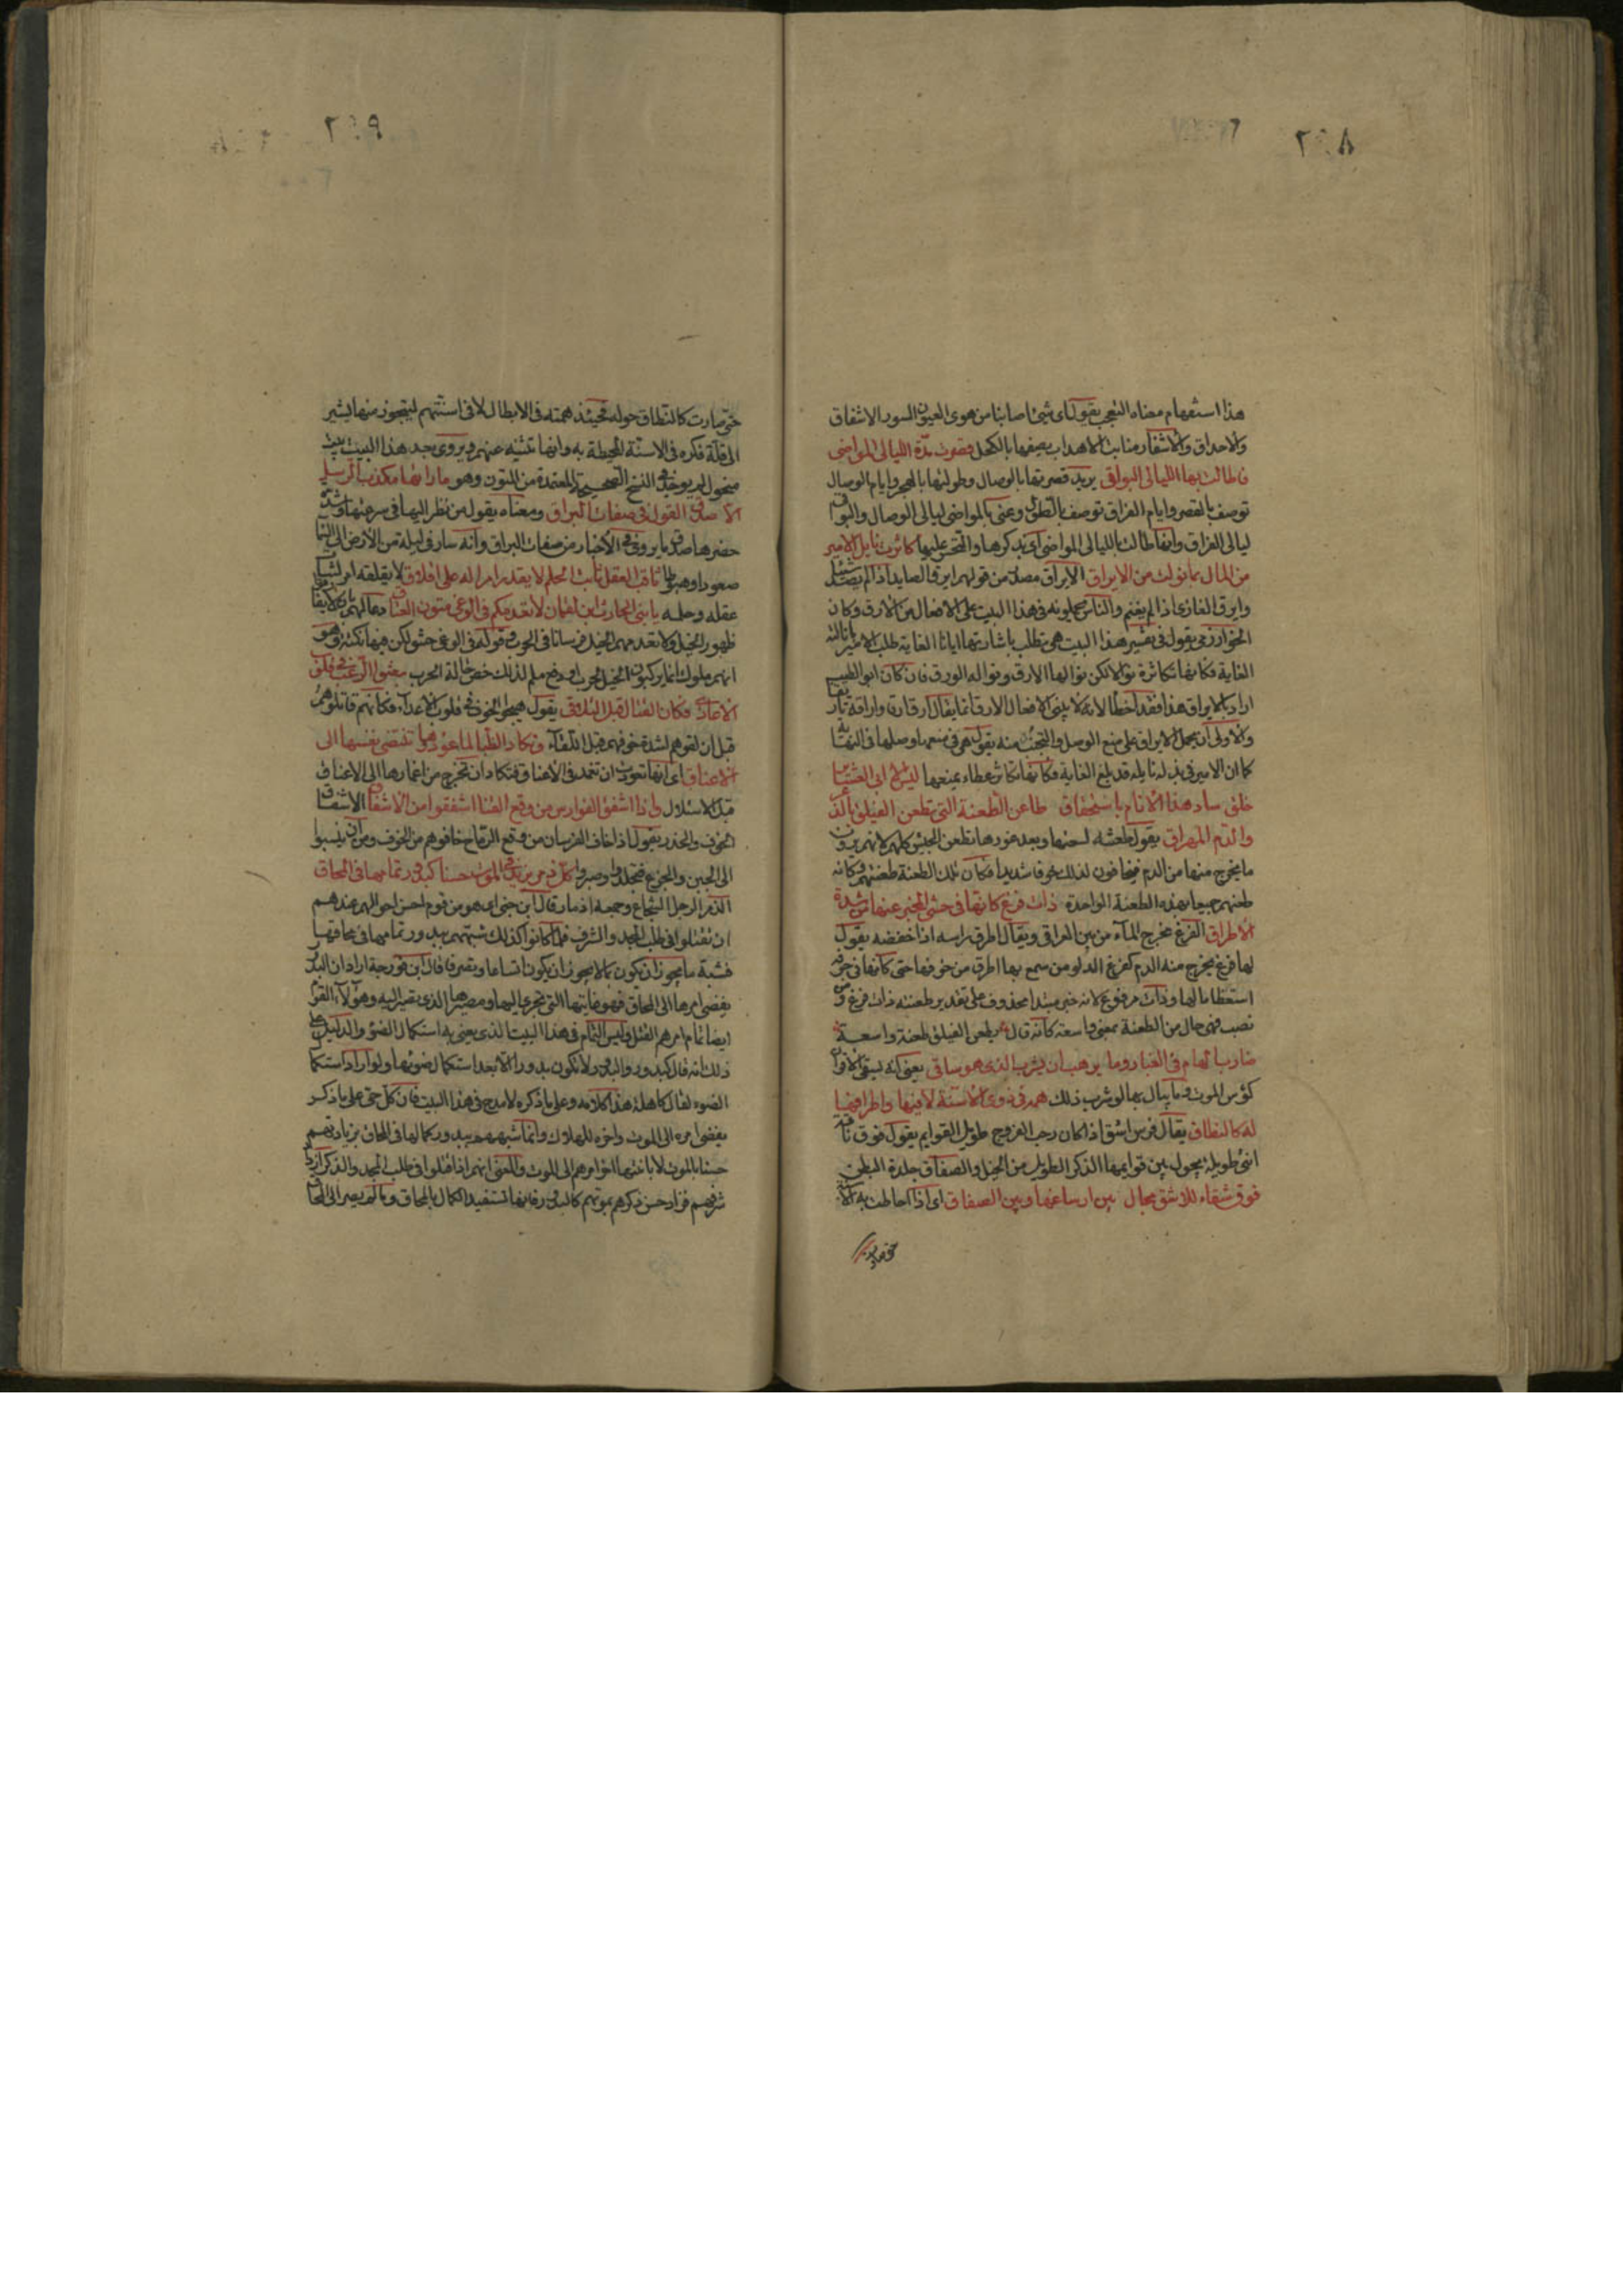 ٢٠٨
هذا استفهام معناه التعجب يقول اى شئ اصابنا من هوى العيون السود الاشفاق
والاحداق والاشفار منابت الاهداب يصفها بالكحل قصرت مدة الليالى المواضى
فاطالت بها الليالى البواقى يريد قصرتها بالوصال وطولتها بالهجر وايام الوصال
توصف بالقصر وايام الفراق توصف بالطول وعنى بالمواضى ليالى الوصال والبواقى
ليالى الفراق وانما طالت بالليالى المواضى اى بذكرها والتحسر عليها كاثرت نايل الامير
من المال بما نولت من الايراق الايراق مصدر من قولهم ايرق الصايد اذا لم يصد
وايرق الغازى اذا لم يغنم والناس يحملونه فى هذا البيت على الافعال من الارق وكان
الخوارزمى يقول فى تفسير هذا البيت هى تطلب باشارتها ايانا الغاية طلب الامير بنايله
الغاية فكانها تكاثره نوالا لكن نوالها الارق ونواله الورق فان كان ابو الطيب
اراد بالايراق هذا فقد اخطأ لانه لا يبنى الافعال من الارق انما يقال ارق ارقا وارقه تاريقا
والاولى ان يحمل الايراق على منع الوصل والتجنب منه يقول هى فى منعها وصلها فى النهاية
كما ان الامير فى بذله نايله قد بلغ الغاية فكانها تكاثر عطاءه بمنعها ليس الا ابى العشاير
خلق ساد هذا الانام باستحقاق طاعن الطعنة التى تطعن الفيلق بالذعر
والدم المهراق يقول طعنته لسعتها وبعد غورها تطعن الجيش كلهم لانهم يرون
ما يخرج منها من الدم فيخافون لذلك خوفا شديدا فكان تلك الطعنة طعنتهم وكانه
طعنهم جميعا بهذه الطعنة الواحدة ذات فرغ كانها فى حشى المخبر عنها من شدة
الاطراق الفرغ مخرج المآء من بين العراقى ويقال اطرق براسه اذا خفضه يقول
لها فرغ يخرج منه الدم كفرغ الدلو من سمع بها اطرق من خوفها حتى كانها فى جوفه
استعظاما لها وذات مرفوع لانه خبر مبتدا محذوف على تقدير طعنته ذات فرغ ومن
نصب فهى حال من الطعنة بمعنى واسعة كانه قال يطعن الفيلق طعنة واسعة
ضارب الهام فى الغبار وما يرهب ان يشرب الذى هو ساقى يعنى انه يسقى الاقران
كؤس الموت وما يبالى بها لو شرب ذلك همه فى ذوى الاسنة لا فيها واطرافها
له كالنطاق يقال فرس اشق اذا كان رحب الفروج طويل القوايم يقول فوق
انثى طويلة يجول بين قوايمها الذكر الطويل من الخيل والصفاق جلدة البطن
فوق شقاء للاشق مجال بين ارساغها وبين الصفاق اى اذا احاطت به الاسنة
حتى صارت
٢٠٩
حتى صارت كالنطاق حوله فحينئذ همته فى الابطال لا فى اسنتهم ليتجوز منها يشير
الى قلة فكره فى الاسنة المحيطة به وانها تثنيه عنهم ويروى بعد هذا البيت بيت
منحول لم يوجد فى النسخ الصحيحة المعتمدة من المتون وهو ما راها مكذب الرسل
الا صدق القول فى صفات البراق ومعناه يقول من نظر اليها فى سرعتها وشدة
حضرها صدق ما يروى فى الاخبار من صفات البراق وانه سار فى ليلة من الارض الى السما
صعودا وهبوطا ثاقب العقل ثابت الحلم لا يقدر امر له على اقلاق لا يقلقه امر لشبات
عقله وحلمه يا بنى الحارث ابن لقمان لا تعدمكم فى الوغى متون العتاق دعا لهم بان لا يفارقوا
ظهور الخيل ولا تعدمهم الخيل فرسانا فى الحرب وقوله فى الوغى حشو لكن فيها نكتة وهو
انهم ملوك انما يركبون الخيل لحرب او دفع ملم لذلك خص حالة الحرب بعثوا الرعب فى قلوب
الاعادى فكان القتال قبل التلاقى يقول هيجوا الخوف فى قلوب الاعداء فكانهم قاتلوهم
قبل ان لقوهم لشدة خوفهم قبل اللقآء وتكاد الظبا لما عودوها تنتضى نفسها الى
الاعناق اى انها تعودت ان تغمد فى الاعناق فتكاد ان تخرج من اغمادها الى الاعناق
قبل الاستلال واذا اشفق الفوارس من وقع القنا اشفقوا من الاشفاق الاشفاق
الخوف والحذر يقول اذا خاف الفرسان من وقع الرماح خافوهم من الخوف ومن ان ينسبوا
الى الجبن والجزع فتجلدوا وصبروا كل ذمر يزيد فى الموت حسنا كبدور تمامها فى المحاق
الذمر الرجل الشجاع وجمعه اذمار قال ابن جنى اى هو من قوم احسن احوالهم عندهم
ان يقتلوا فى طلب المجد والشرف فلما كانوا كذلك شبههم ببدور تمامها فى محاقها
فشبه ما يجوز ان يكون بما لا يجوز ان يكون اتساعا وتصرفا قال ابن فورجة اراد ان البدر
يفضى امرها الى المحاق فهو غايتها التى تجرى اليها ومصيرها الذى تصير اليه وهؤلآء القوم
ايضا تمام امرهم القتل وليس التمام فى هذا البيت الذى يعنى به استكمال الضوء والدليل على
ذلك انه قال كبدور والبدور لا تكون بدورا الا بعد استكمال ضوئها ولو اراد استكمال
الضوء لقال كاهلة هذا كلامه وعلى ما ذكره لا مدح فى هذا البيت فان كل حى على ما ذكر
يفضى امره الى الموت واخره للهلاك وانما شبههم ببدور كمالها فى المحاق بزيادتهم
حسنا بالموت لا باختهاا امرهم الى الموت والمعنى انهم اذا قتلوا فى طلب المجد والذكر ازداد
شرفهم فزاد حسن ذكرهم بموتهم كالبدور فانها تستفيد الكمال بالمحاق وما لم يصر الى المحاق